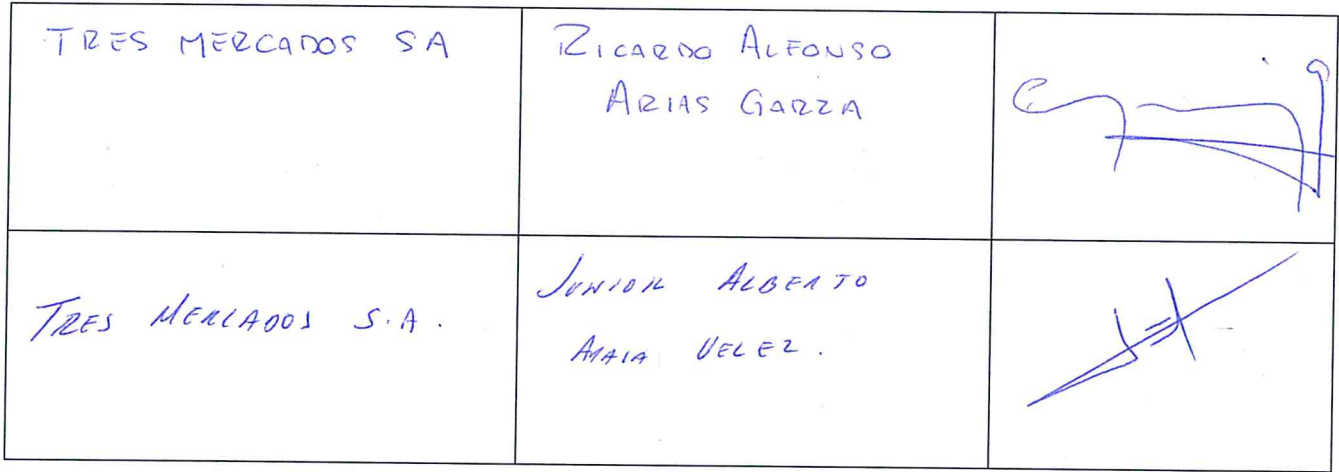 TRES MERCADOS SA
RICARDO ALFONSO
ARIAS GARZA
TRES MERCADOS S.A.
JUNIOR ALBERTO
VELEZ.